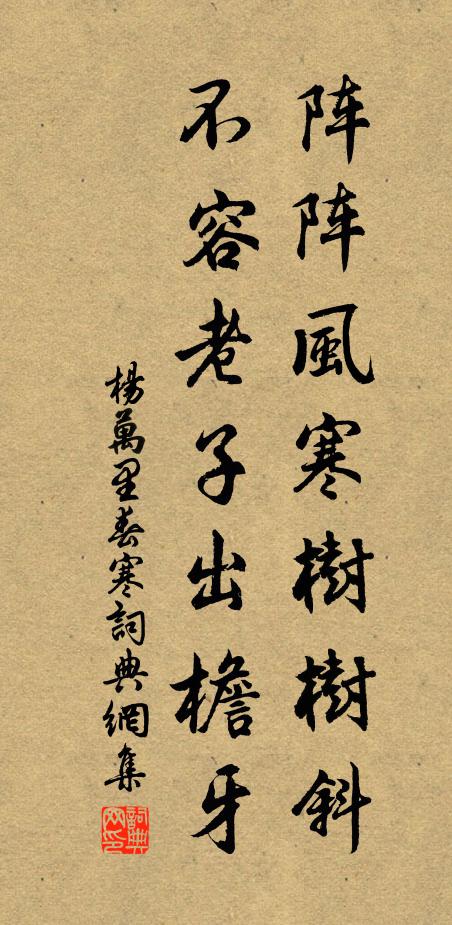 阵阵風寒樹樹斜
不容老子出檐牙
楊萬里春寒詞典網集
詞典網印